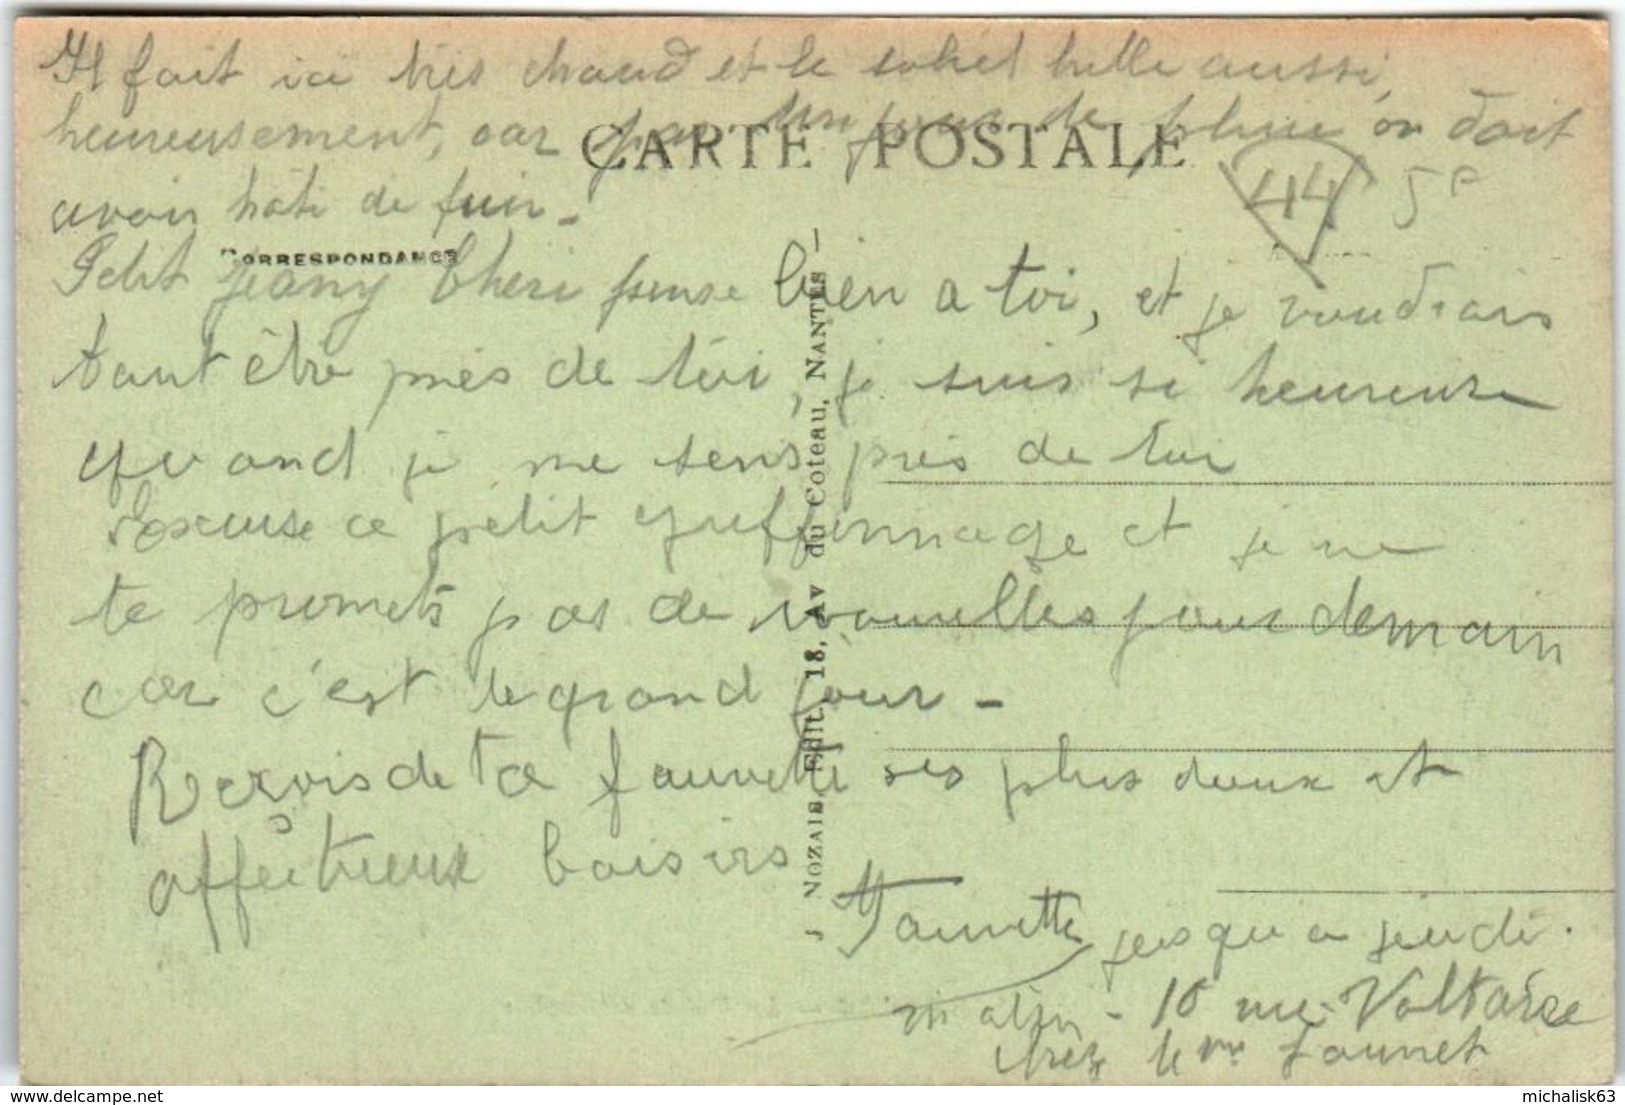 Il fait ici très chaud et le soleil brille aussi,
heureusement, car par un jour de pluie on doit
CARTE POSTALE
44 5F
avoir hâte de fuir -
CORRESPONDANCE
Petit Jeany Chéri pense bien a toi, et je voudrais
tant être près de toi, je suis si heureuse
quand je me sens près de toi
Excuse ce petit griffonnage et je ne
te promets pas de nouvelles pour demain
car c'est le grand jour -
Recevois de ta fauvette ses plus doux et
affectueux baisers
Fauvette jusqu'a jeudi.
matin - 16 rue Voltaire
chez Mme Jaunet
J NOZAIS, Edit., 18, Av du Coteau, NANTES
delcampe.net
michalisk63